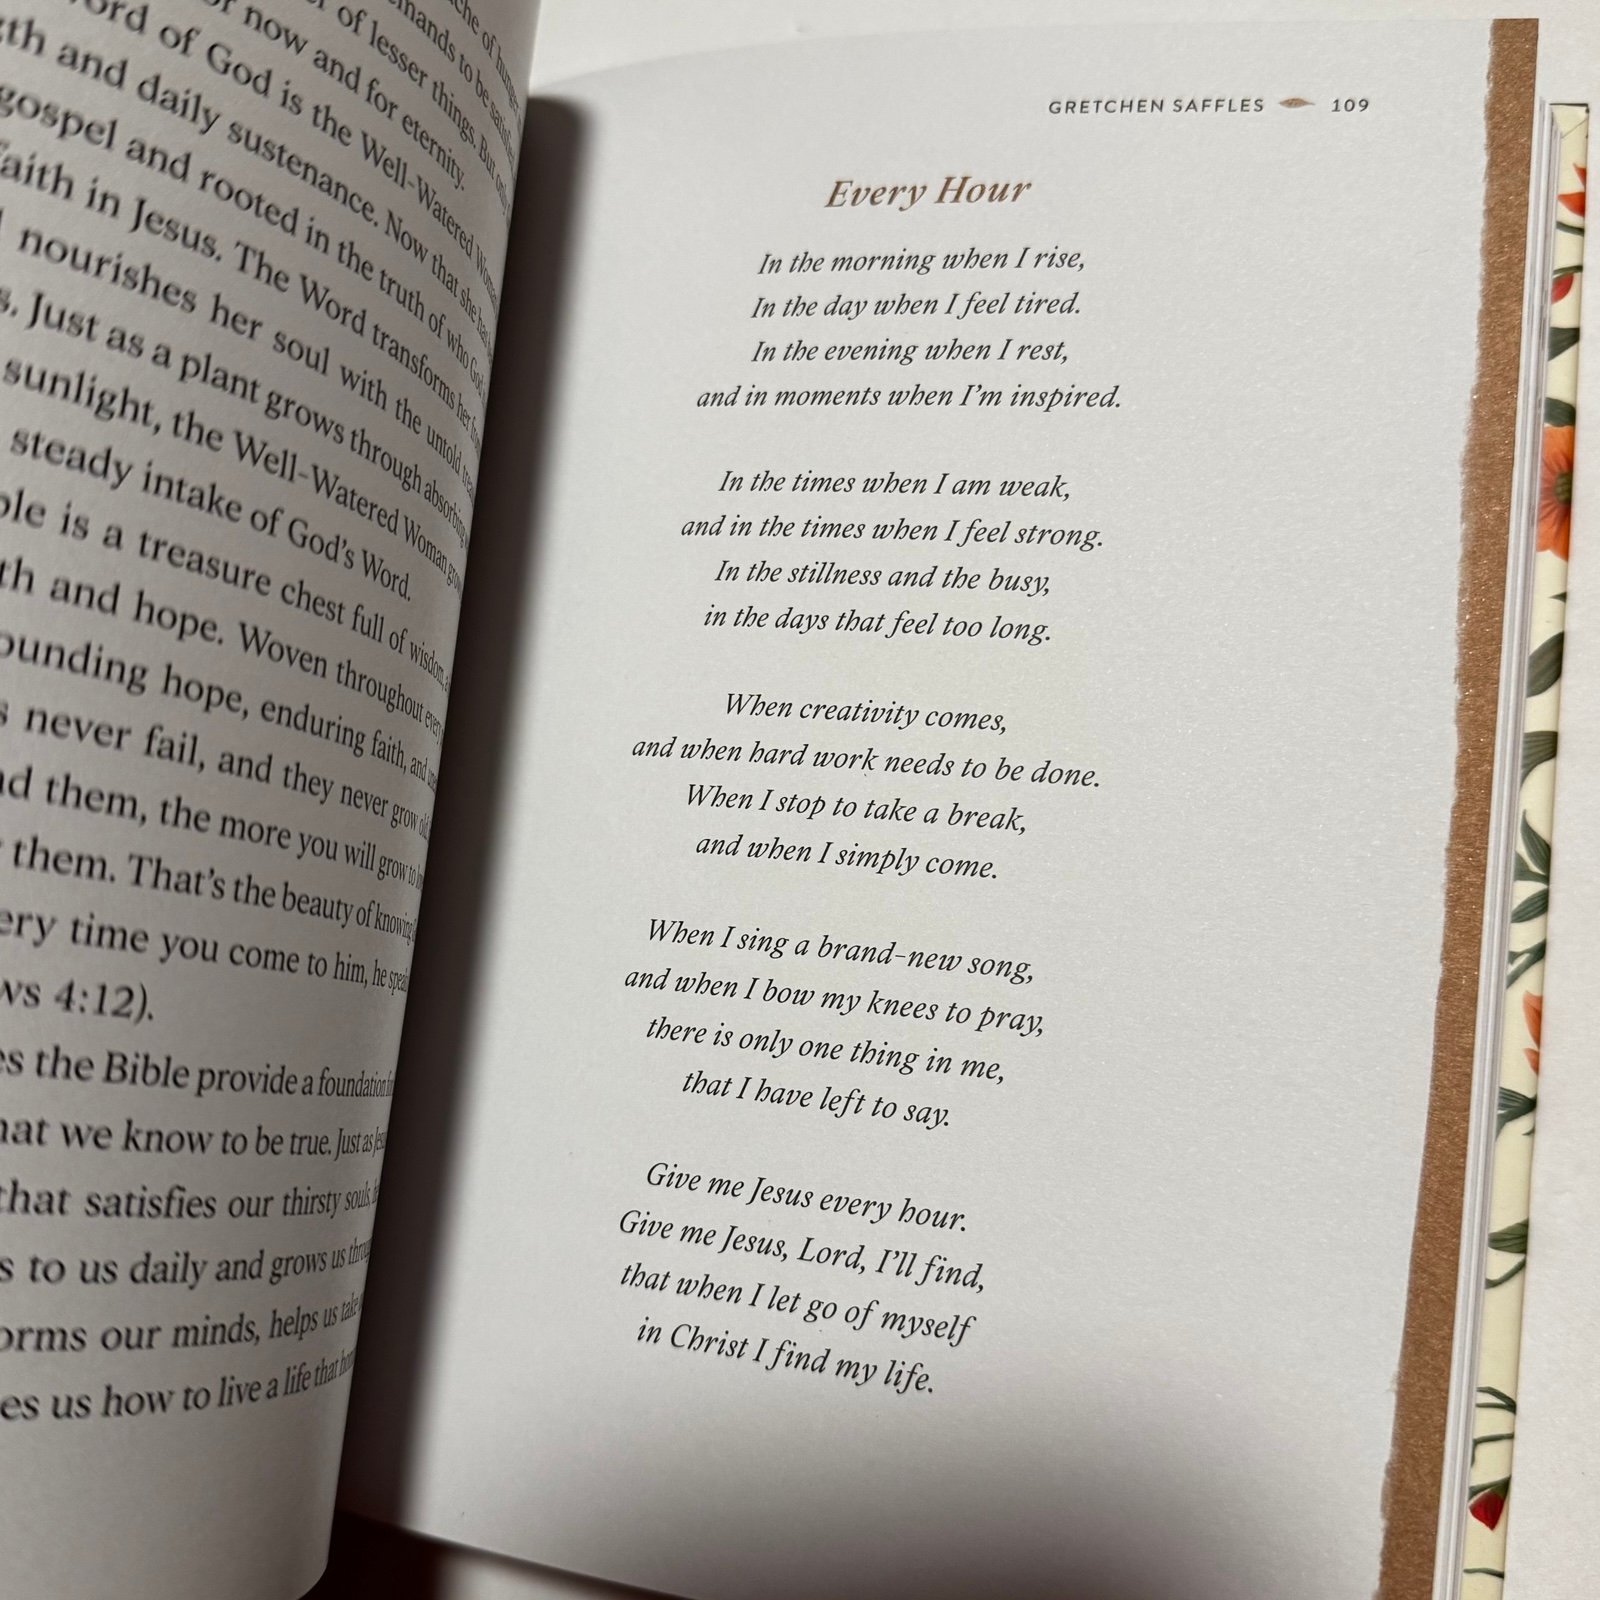 ache of hunger
demands to be satisfied
of lesser things. But only
for now and for eternity.
Word of God is the Well-Watered Woman
and daily sustenance. Now that she has
gospel and rooted in the truth of who God
faith in Jesus. The Word transforms her
nourishes her soul with the untold
Just as a plant grows through absorbing
sunlight, the Well-Watered Woman
steady intake of God's Word.
is a treasure chest full of wisdom,
and hope. Woven throughout every
hope, enduring faith, and
never fail, and they never grow old.
them, the more you will grow to
them. That's the beauty of knowing
time you come to him, he
4:12).
the Bible provide a foundation
we know to be true. Just as
that satisfies our thirsty souls,
to us daily and grows us
our minds, helps us take
us how to live a life that
GRETCHEN SAFFLES 109
Every Hour
In the morning when I rise,
In the day when I feel tired.
In the evening when I rest,
and in moments when I'm inspired.
In the times when I am weak,
and in the times when I feel strong.
In the stillness and the busy,
in the days that feel too long.
When creativity comes,
and when hard work needs to be done.
When I stop to take a break,
and when I simply come.
When I sing a brand-new song,
and when I bow my knees to pray,
there is only one thing in me,
that I have left to say.
Give me Jesus every hour.
Give me Jesus, Lord, I'll find,
that when I let go of myself
in Christ I find my life.